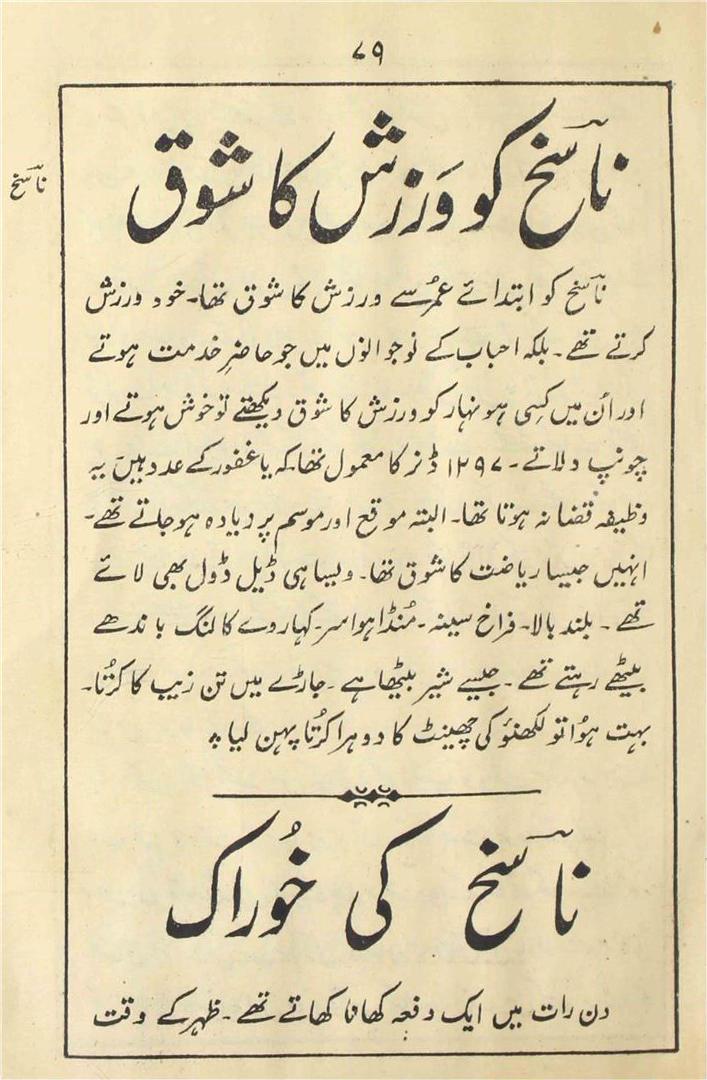 ۷۹
ناسخ
ناسخ کو ورزش کا شوق
ناسخ کو ابتدائے عمر سے ورزش کا شوق تھا۔ خود ورزش
کرتے تھے۔ بلکہ احباب کے نوجوانوں میں جو حاضرِ خدمت ہوتے
اور اُن میں کسی ہونہار کو ورزش کا شوق دیکھتے تو خوش ہوتے اور
چونپ دلاتے۔ ۱۲۹۷ ڈنڑ کا معمول تھا۔ کہ یا غفور کے عدد ہیں یہ
وظیفہ قضا نہ ہوتا تھا۔ البتہ موقع اور موسم پر زیادہ ہو جاتے تھے۔
انہیں جیسا ریاضت کا شوق تھا۔ ویسا ہی ڈیل ڈول بھی لائے
تھے۔ بلند بالا۔ فراخ سینہ۔ مُنڈا ہوا سر۔ کہاروے کا لنگ باندھے
بیٹھے رہتے تھے۔ جیسے شیر بیٹھا ہے۔ جاڑے میں تن زیب کا کُرتا۔
بہت ہُوا تو لکھنؤ کی چھینٹ کا دوہرا کُرتا پہن لیا ؞
ناسخ کی خُوراک
دن رات میں ایک دفعہ کھانا کھاتے تھے۔ ظہر کے وقت